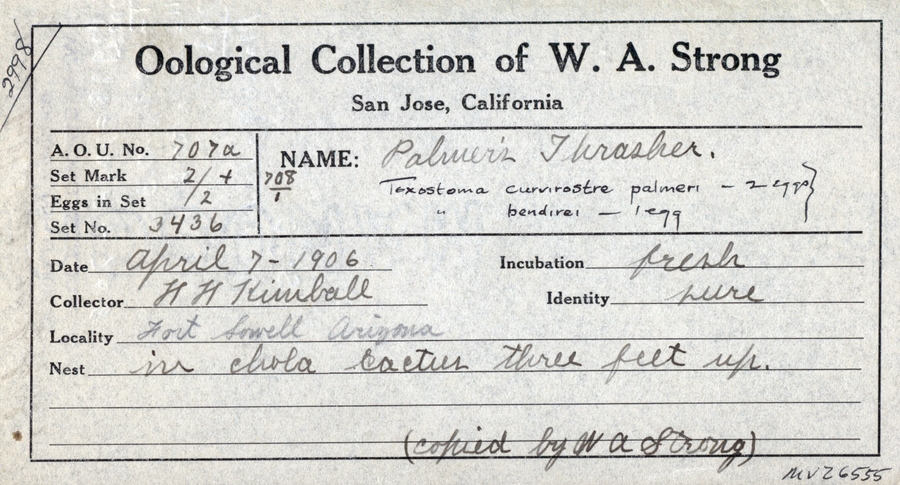 2998
Oological Collection of W. A. Strong
San Jose, California
A. O. U. No. 707a
Set Mark 2/+ 708/1
Eggs in Set /2
Set No. 3436
NAME: Palmer's Thrasher.
Toxostoma curvirostre palmeri - 2 eggs }
" bendirei - 1 egg
Date April 7 - 1906
Incubation fresh
Collector H H Kimball
Identity sure
Locality Fort Lowell Arizona
Nest in chola cactus three feet up.
(copied by W A Strong)
MVZ6555